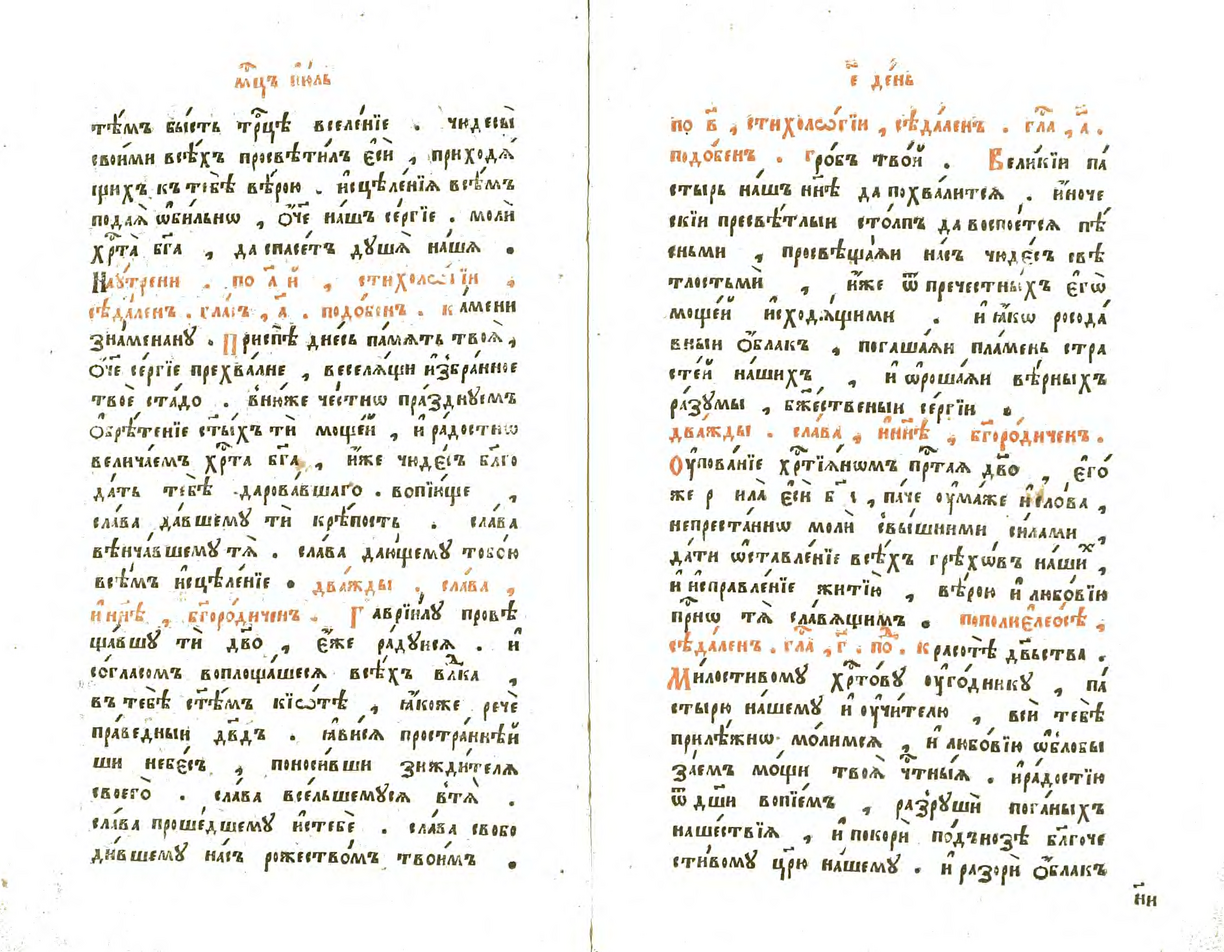 мⷭ҇цъ і҆ю́ль
тѣ́мъ бы́сть трⷪ҇цѣ вселе́нїе . чюдесы̀
свои́ми всѣ́хъ просвѣти́лъ є҆сѝ , приходѧ́
щихъ къ тебѣ̀ вѣ́рою . и҆сцѣле́нїѧ всѣ́мъ
подаѧ̀ ѡ҆би́льнѡ , ѻ҆́ч҃е на́шъ се́ргїе . молѝ
хрⷭ҇та̀ бг҃а , да спасе́тъ дꙋшѧ̀ на́шѧ .
Наꙋ҆́трени . по а҃ й , стихоло́гїи ,
сѣда́ленъ . гла́съ , а҃ . подо́бенъ . ка́мени
зна́менанꙋ . Приспѣ̀ дне́сь па́мѧть твоѧ̀ ,
ѻ҆́ч҃е се́ргїе прехва́лне , веселѧ́щи и҆збра́нное
твоѐ ста́до . в̾ню́же че́стнѡ пра́зднꙋемъ
ѻ҆брѣ́тенїе ст҃ы́хъ тѝ моще́й , и҆ ра́достнѡ
велича́емъ хрⷭ҇та̀ бг҃а , и҆́же чюде́съ бл҃го
да́ть тебѣ̀ дарова́вшаго . вопїю́ще ,
сла́ва да́вшемꙋ тѝ крѣ́пость . сла́ва
вѣнча́вшемꙋ тѧ̀ . сла́ва даю́щемꙋ тобо́ю
всѣ́мъ и҆сцѣле́нїе . два́жды . сла́ва ,
и҆ нн҃ѣ , бг҃оро́диченъ . Гаврїи́лꙋ провѣ
ща́вшꙋ тѝ дв҃о , є҆́же ра́дꙋисѧ . и҆
со́гласомъ воплоща́шесѧ всѣ́хъ влⷣка ,
въ тебѣ̀ ст҃ѣ́мъ кїѡ́тѣ , ꙗ҆́коже речѐ
пра́ведныи дв҃дъ . ꙗ҆ви́сѧ простра́ннѣй
ши небе́съ , поноси́вши зижди́телѧ
своего̀ . сла́ва все́льшемꙋсѧ в̾тѧ̀ .
сла́ва проше́дшемꙋ и҆стебѐ . сла́ва свобо
ди́вшемꙋ на́съ рожество́мъ твои́мъ .
є҃ де́нь
по в҃ , стихоло́гїи , сѣда́ленъ . гла́ , а҃ .
подо́бенъ . Гро́бъ тво́й . Вели́кїи па́
стырь на́шъ нн҃ѣ да похва́литсѧ . и҆́ноче
скїи пресвѣ́тлыи сто́лпъ да воспое́тсѧ пѣ́
сньми , просвѣща́ѧи на́съ чюде́съ свѣ́
тлостьмѝ , и҆́же ѿ пречестны́хъ є҆гѡ̀
моще́й и҆сходѧ́щими . и҆ ꙗ҆́кѡ росода́
вныи ѻ҆́блакъ , погаша́ѧи пла́мень стра
сте́й на́шихъ , и҆ ѡ҆роша́ѧи вѣ́рныхъ
ра́зꙋмы , бж҃е́ственыи се́ргїи .
два́жды . сла́ва , и҆ нн҃ѣ , бг҃оро́диченъ .
Оу҆пова́нїе хрⷭ҇тїѧ́нѡмъ прⷭ҇таѧ дв҃о , є҆го́
же є҆сѝ , па́че оу҆ма́же и҆ сло́ва ,
непреста́ннѡ молѝ свы́шними си́лами ,
да́ти ѡ҆ставле́нїе всѣ́хъ грѣхѡ́въ на́шиⷯ ,
и҆ и҆справле́нїе житїю̀ , вѣ́рою и҆ любо́вїю
прⷭ҇нѡ тѧ̀ сла́вѧщимъ . пополиеле́осѣ ,
сѣда́ленъ . гла́ , г҃ . поⷣ . Красотѣ̀ дв҃ьства .
Ми́лостивомꙋ хрⷭ҇то́вꙋ оу҆го́дникꙋ , па́
стырю на́шемꙋ и҆ оу҆чи́телю , всѝ тебѣ̀
прилѣ́жнѡ мо́лимсѧ , и҆ любо́вїю ѡ҆блобы
за́емъ мо́щи твоѧ̀ чⷭ҇тны́ѧ . и҆ра́достїю
ѿ дш҃и вопїе́мъ , разрꙋшѝ пога́ныхъ
наше́ствїѧ , и҆ покорѝ по́дънозѣ бл҃гоче
сти́вомꙋ цр҃ю на́шемꙋ . и҆ разорѝ ѻ҆́блакъ
н҃и